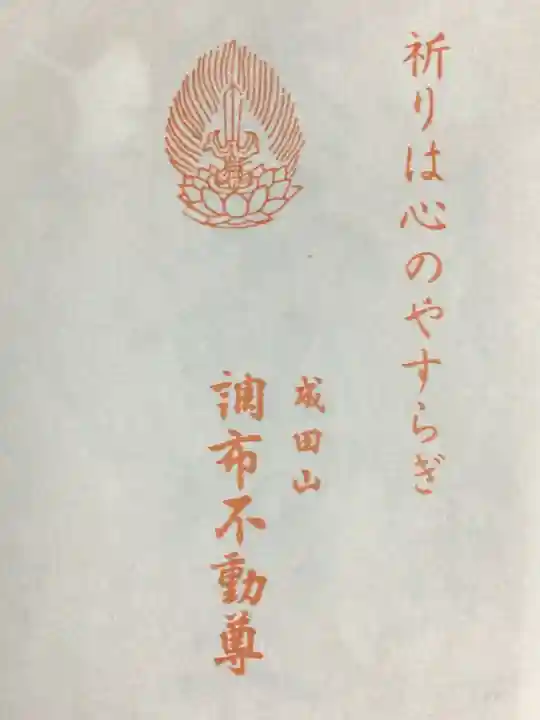 祈りは心のやすらぎ
成田山
調布不動尊